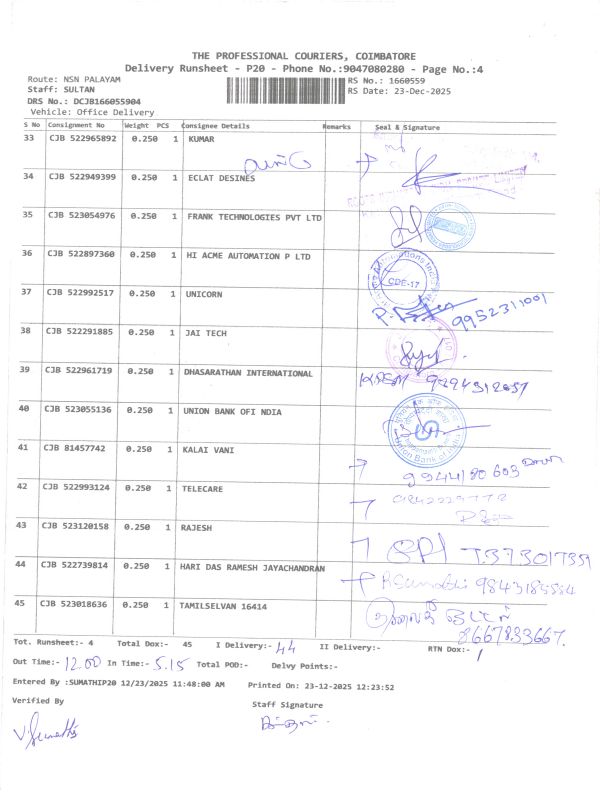 THE PROFESSIONAL COURIERS, COIMBATORE
Delivery Runsheet - P20 - Phone No.:9047080280 - Page No.:4
Route: NSN PALAYAM
RS No.: 1660559
Staff: SULTAN
RS Date: 23-Dec-2025
DRS No.: DCJB166055904
Vehicle: Office Delivery
S No Consignment No Weight PCS Consignee Details Remarks Seal & Signature
33 CJB 522965892 0.250 1 KUMAR
34 CJB 522949399 0.250 1 ECLAT DESINES
35 CJB 523054976 0.250 1 FRANK TECHNOLOGIES PVT LTD
36 CJB 522897360 0.250 1 HI ACME AUTOMATION P LTD
CDE-17
37 CJB 522992517 0.250 1 UNICORN
9952311001
38 CJB 522291885 0.250 1 JAI TECH
39 CJB 522961719 0.250 1 DHASARATHAN INTERNATIONAL
40 CJB 523055136 0.250 1 UNION BANK OFI NDIA
Union Bank of India
41 CJB 81457742 0.250 1 KALAI VANI
9944180603
42 CJB 522993124 0.250 1 TELECARE
43 CJB 523120158 0.250 1 RAJESH
44 CJB 522739814 0.250 1 HARI DAS RAMESH JAYACHANDRAN
45 CJB 523018636 0.250 1 TAMILSELVAN 16414
8667833667.
Tot. Runsheet:- 4 Total Dox:- 45 I Delivery:- 44 II Delivery:- RTN Dox:- 1
Out Time:- 12.00 In Time:- 5.15 Total POD:- Delvy Points:-
Entered By :SUMATHIP20 12/23/2025 11:48:00 AM Printed On: 23-12-2025 12:23:52
Verified By Staff Signature